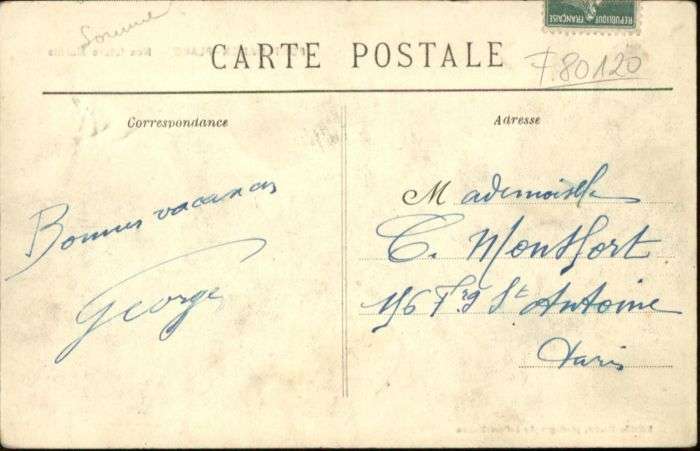 Somme
REPUBLIQUE FRANÇAISE
CARTE POSTALE
F.80120
Correspondance
Adresse
Bonnes vacances
George
Mademoiselle
C. Montfort
156 Frg St Antoine
Paris